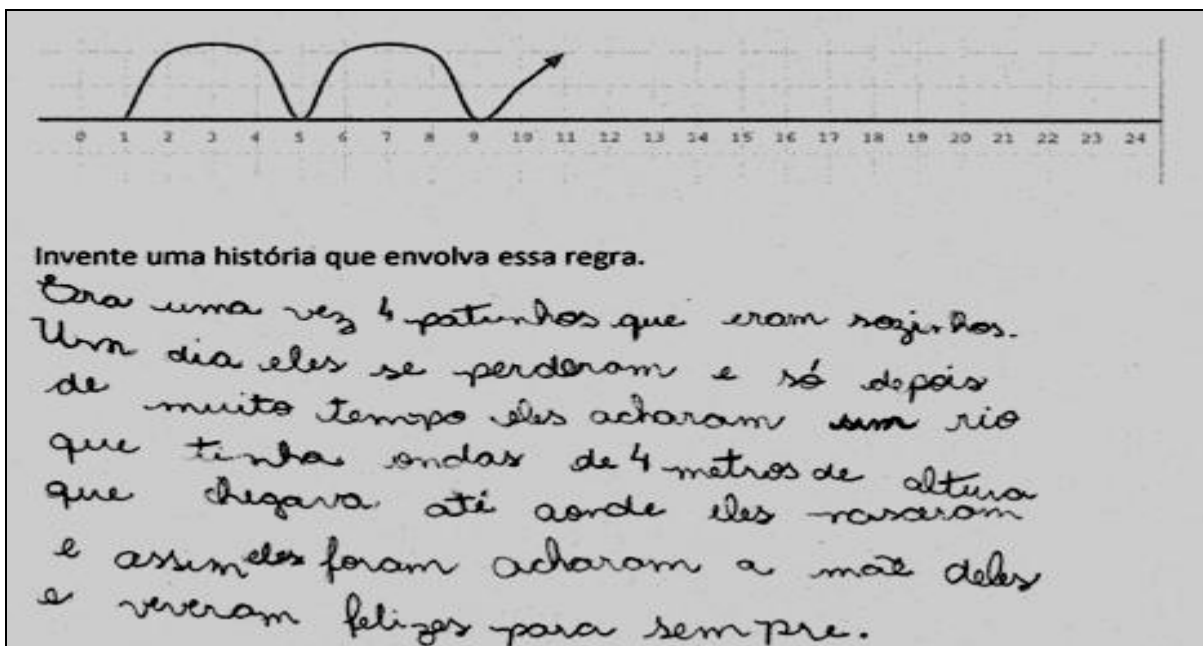 0 1 2 3 4 5 6 7 8 9 10 11 12 13 14 15 16 17 18 19 20 21 22 23 24
Invente uma história que envolva essa regra.
Era uma vez 4 patinhos que eram sozinhos.
Um dia eles se perderam e só depois
de muito tempo eles acharam um rio
que tinha ondas de 4 metros de altura
que chegava até aonde eles nasceram
e assim eles foram acharam a mãe deles
e veveram felizes para sempre.